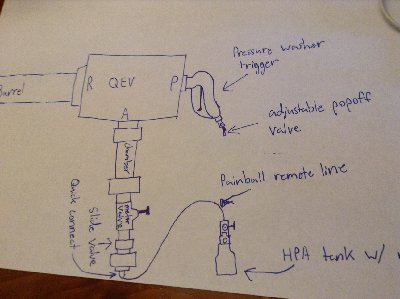 Pressure washer
trigger
Barrel
R QEV P
A
adjustable popoff
valve
chamber
Painball remote line
meter
valve
Slide Valve
Quick connect
HPA tank w/